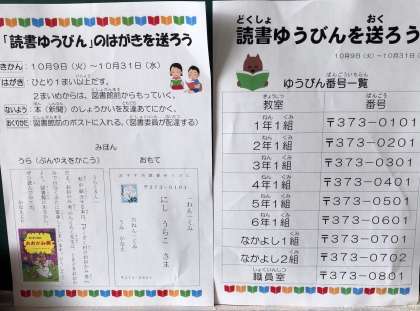 「読書ゆうびん」のはがきを送ろう
きかん：１０月９日（火）〜１０月３１日（水）
はがき：ひとり１まい以上だす。
２まいめからは、図書館前からもっていく。
ないよう：本（新聞）のしょうかいを友達あてにかく。
おくりかた：図書館前のポストに入れる。（図書委員が配達する）
みほん
うら（ぶんやえをかこう）
おもて
〒373-0101
にし うらこ さま
読書ゆうびんを送ろう
１０月９日（火）〜１０月３１
ゆうびん番号一覧
教室 番号
１年１組 〒373-0101
２年１組 〒373-0201
３年１組 〒373-0301
４年１組 〒373-0401
５年１組 〒373-0501
６年１組 〒373-0601
なかよし１組 〒373-0701
なかよし２組 〒373-0702
職員室 〒373-0801